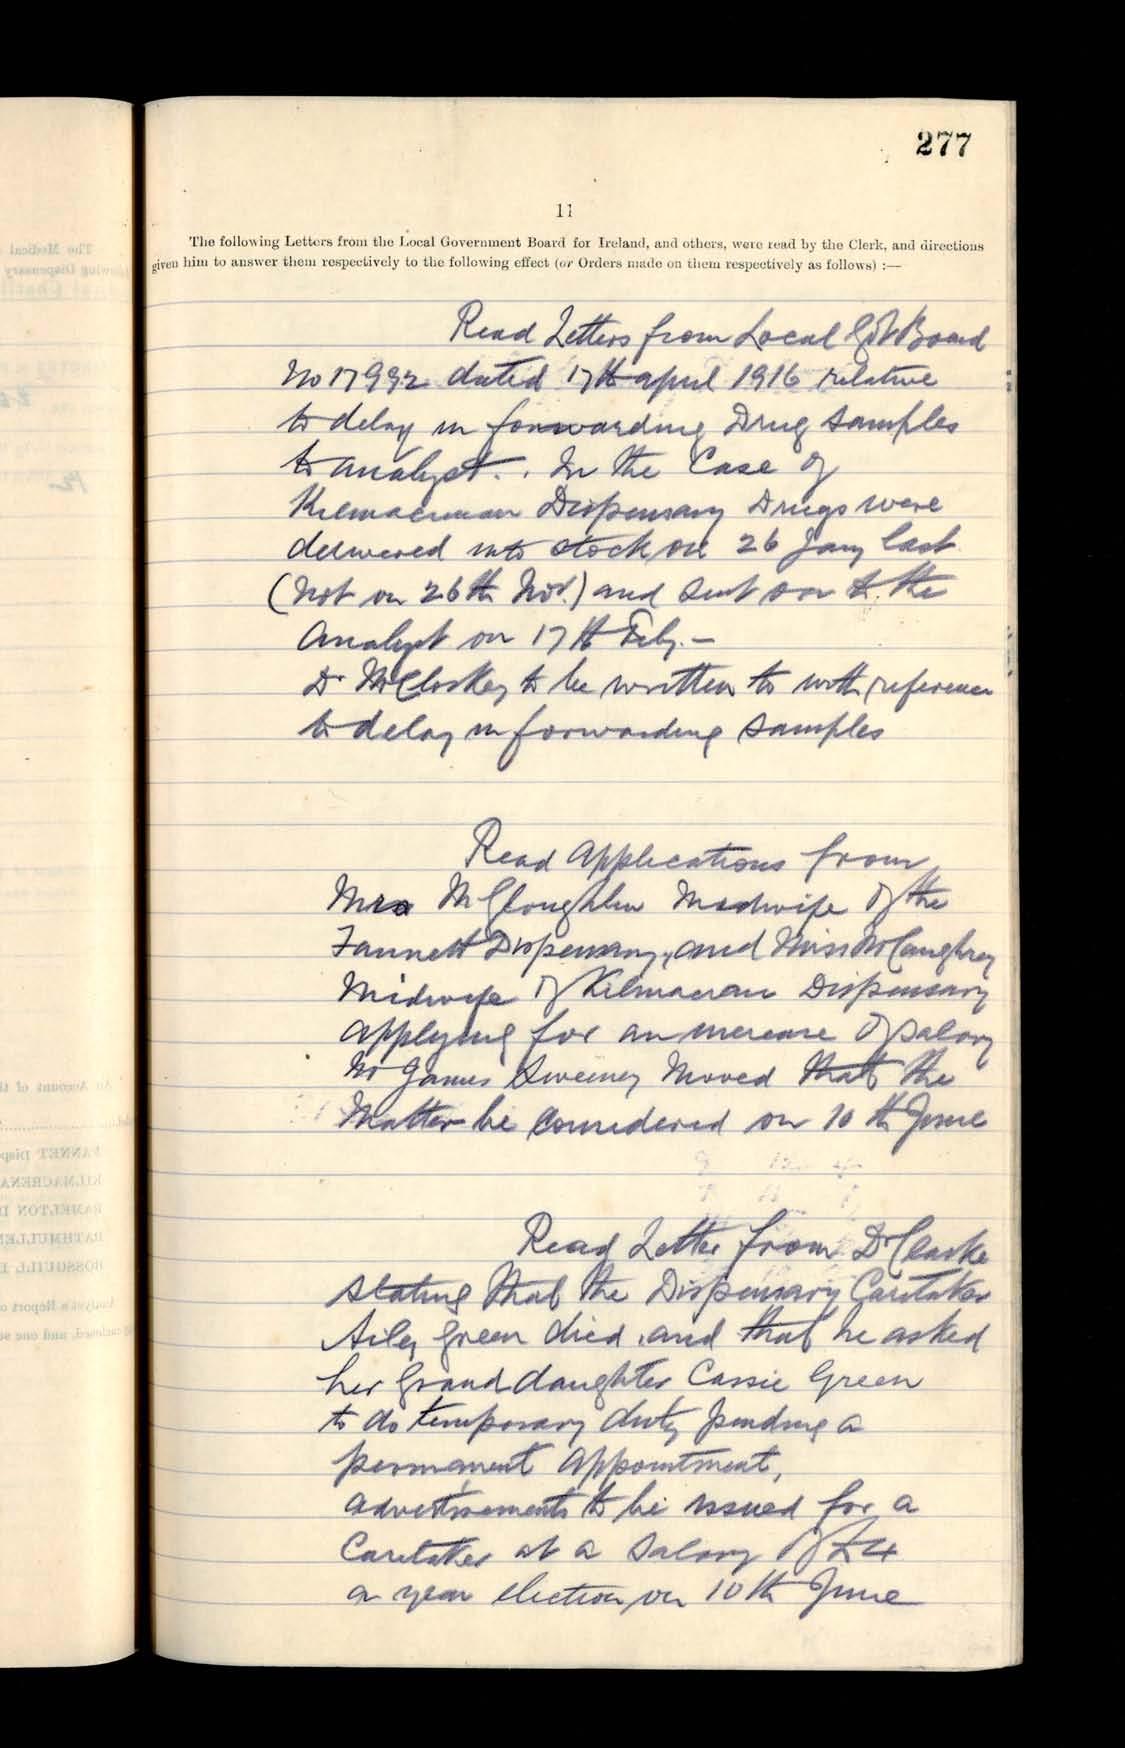 277
11
The following Letters from the Local Government Board for Ireland, and others, were read by the Clerk, and directions
given him to answer them respectively to the following effect (or Orders made on them respectively as follows) :—
Read Letters from Local Govt Board
No 17992 dated 17th april 1916 relative
to delay in forwarding Drug samples
to analyst. . In the Case of
Kilmacrenan Dispensary Drugs were
delivered into stock on 26 Jany last
(not on 26th Nov.) and sent on to the
analyst on 17th Feby. —
Dr McCloskey to be written to with reference
to delay in forwarding samples
Read applications from
Mrs McGloughlin Midwife of the
Fannett Dispensary, and Miss McCaughrey
Midwife of Kilmacrenan Dispensary
applying for an increase of salary
Mr James Sweeney Moved that the
Matter be considered on 10th June
Read Letter from Dr Clarke
stating that the Dispensary Caretaker
Green died, and that he asked
her Grand daughter Cassie Green
to do temporary duty pending a
permanent appointment,
advertisements to be issued for a
Caretaker at a salary of £4
a year election on 10th June